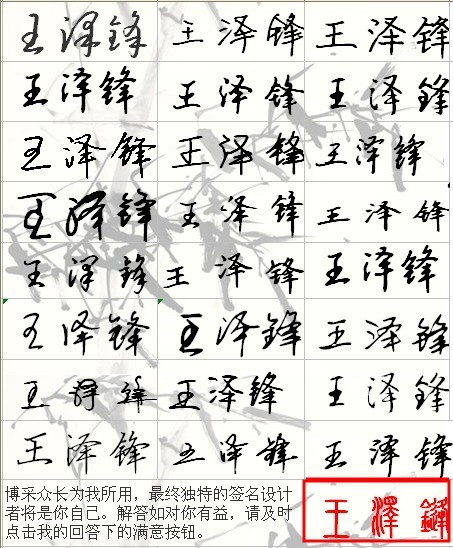 王泽锋 王泽锋 王泽锋
王泽锋 王泽锋 王泽锋
王泽锋 王泽锋 王泽锋
王泽锋 王泽锋 王泽锋
王泽锋 王泽锋 王泽锋
王泽锋 王泽锋 王泽锋
王泽锋 王泽锋 王泽锋
王泽锋 王泽锋 王泽锋
博采众长为我所用，最终独特的签名设计
者将是你自己。解答如对你有益，请及时
点击我的回答下的满意按钮。
王澤鋒